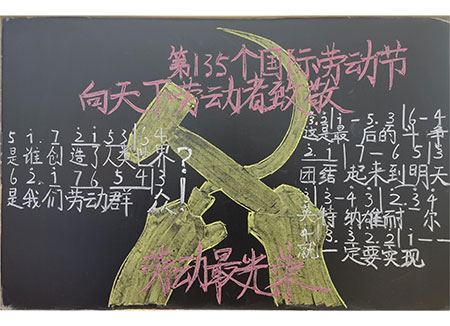 第135个国际劳动节
向天下劳动者致敬
5 i. 7 2 i 5 3 | 6 4
是谁创造了人类世界
6 2. i 7 6 5 4 | 3
是我们劳动群众?!
这是最后的斗争
2. i | 7 - 6 5 | 3
团结起来到明天
英特纳雄耐尔
4. | 3. 3 2. 2 | i - -
就一定要实现
劳动最光荣